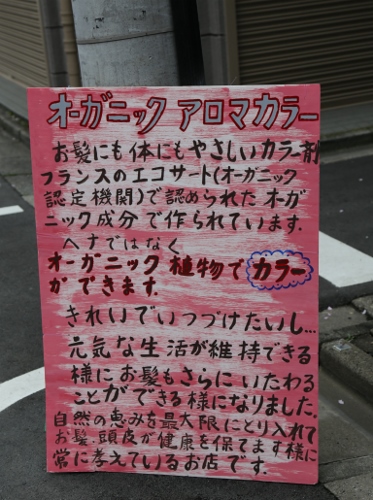 オーガニック アロマカラー
お髪にも体にもやさしいカラー剤
フランスのエコサート(オーガニック
認定機関)で認められた オーガ
ニック成分で作られています.
ヘナではなく
オーガニック 植物で カラー
ができます.
きれいでいつづけたいし...
元気な生活が維持できる
様にお髪もさらにいたわる
ことができる様になりました.
自然の恵みを最大限にとり入れて
お髪、頭皮が健康を保てます様に
常に考えているお店です.